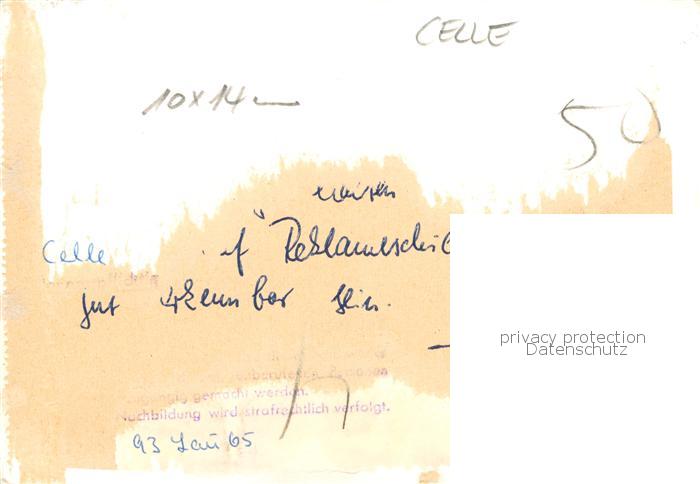 CELLE
10 x 14
50
müssen
Celle
f "Reklameschi
gut erkennbar sein.
gemacht werden.
Nachbildung wird strafrechtlich verfolgt.
93 65
privacy protection
Datenschutz